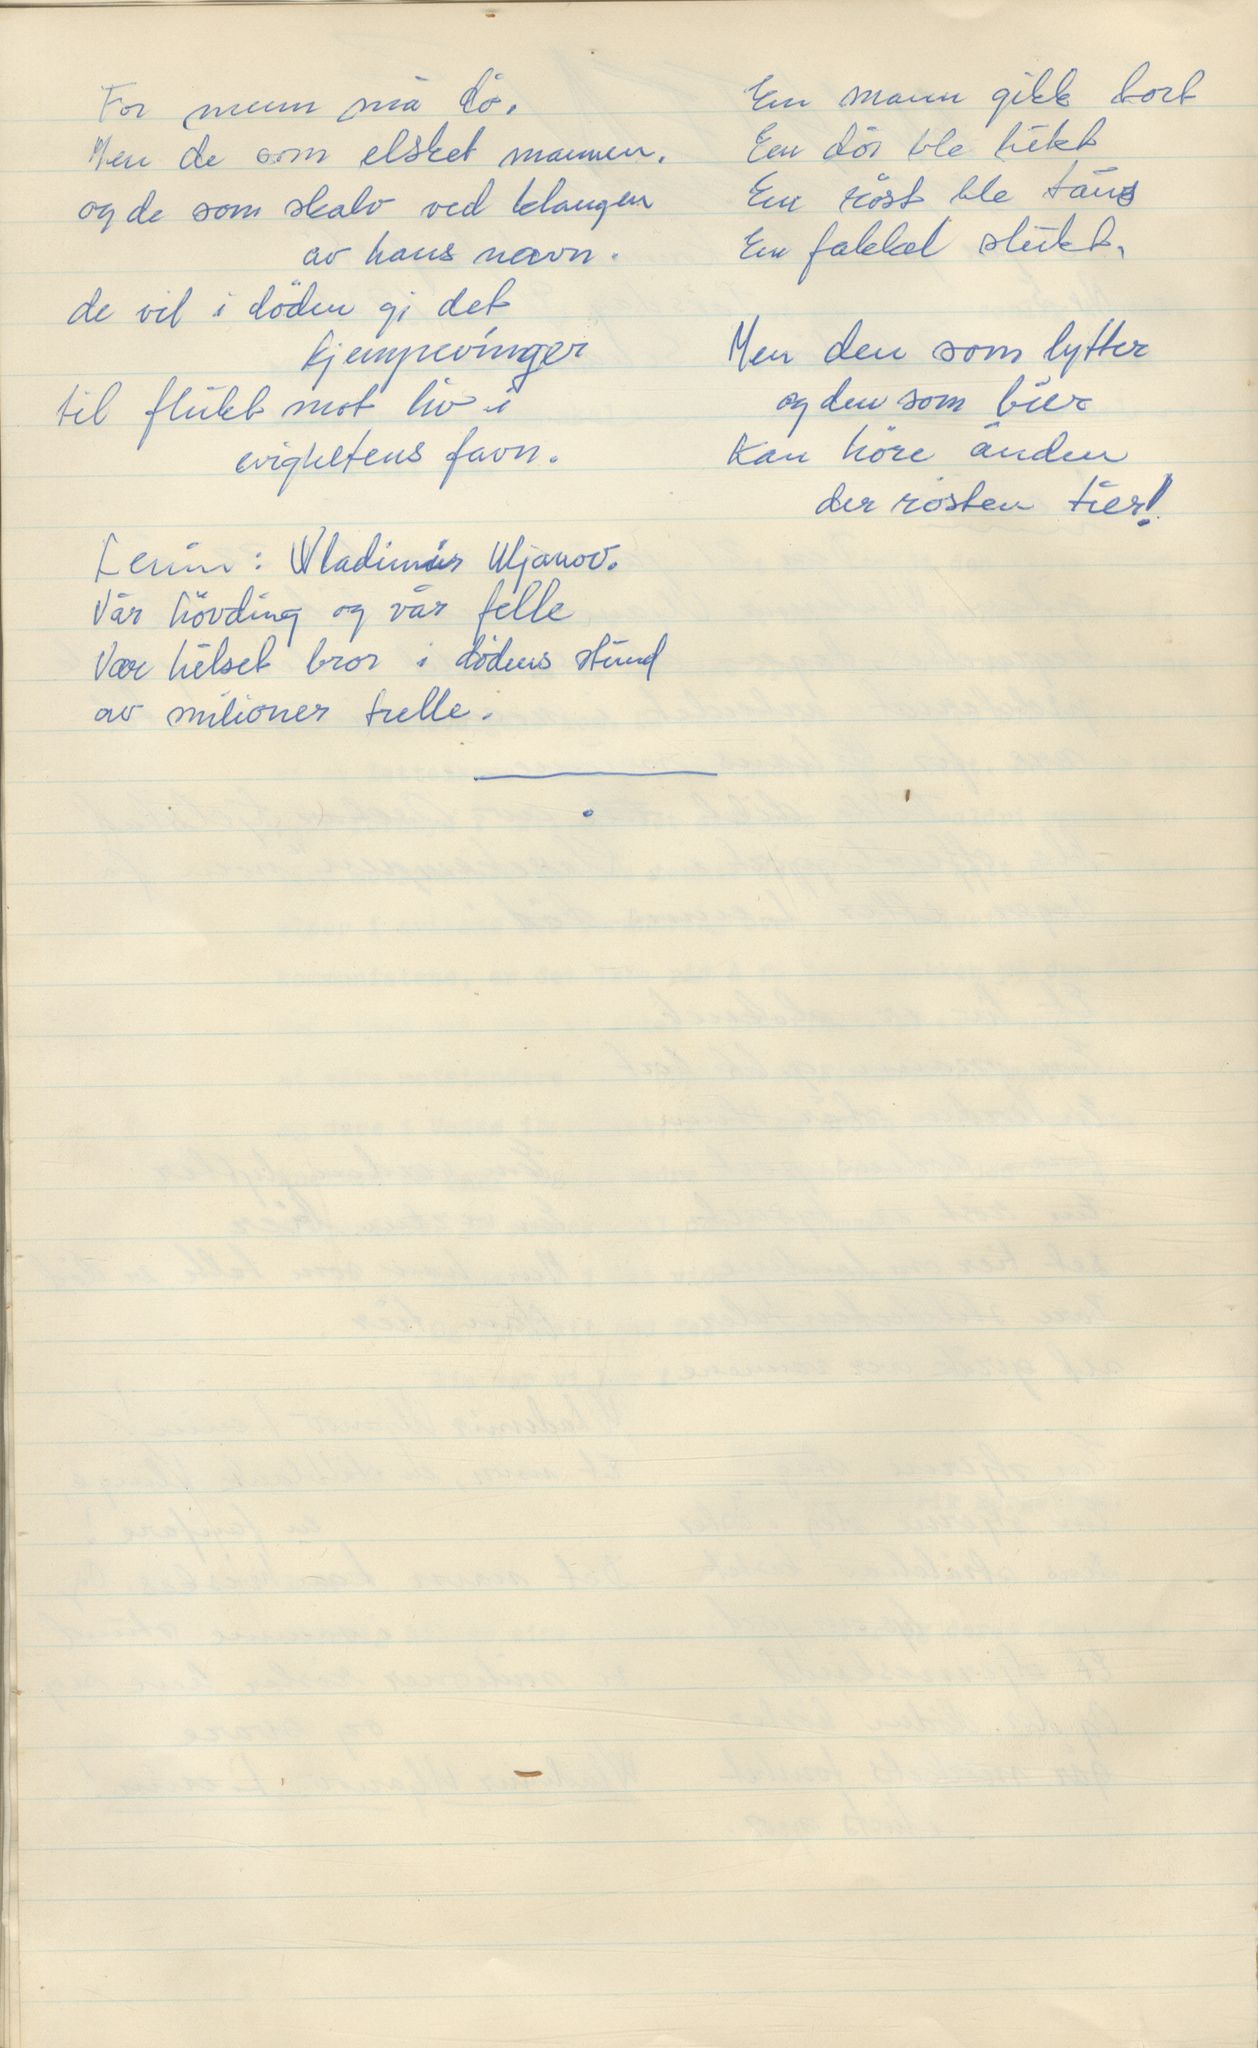 For munn må dö.
Men de som elsket mannen.
og de som skalv ved klangen
av hans navn.
de vil i döden gi det
kjempevinger
til flukt mot liv i
evighetens favn.
Lenin: Vladimir Uljanov.
Vår hövding og vår felle
Vær hilset bror i dödens stund
av milioner trelle.
En mann gikk bort
En dör ble lukt
En röst ble taus
En fakkel slukt.
Men den som lytter
og den som bier
Kan höre ånden
der rösten tier!